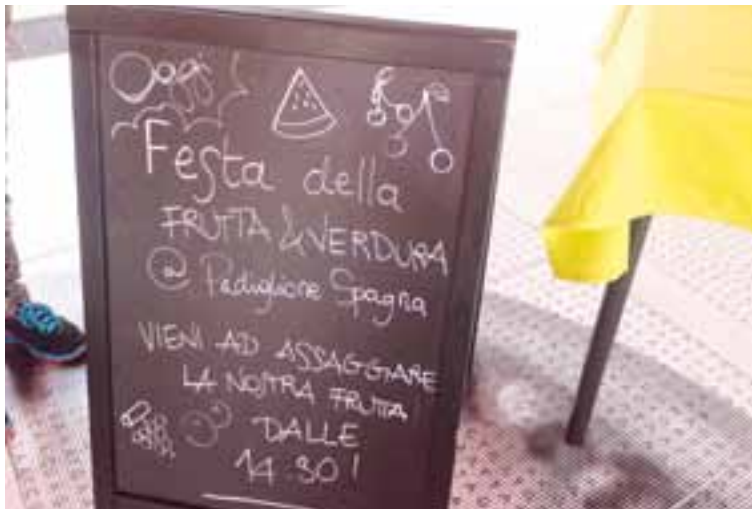 Oggi
Festa della
FRUTTA & VERDURA
@ Padiglione Spagna
VIENI AD ASSAGGIARE
LA NOSTRA FRUTTA
DALLE
14.30!